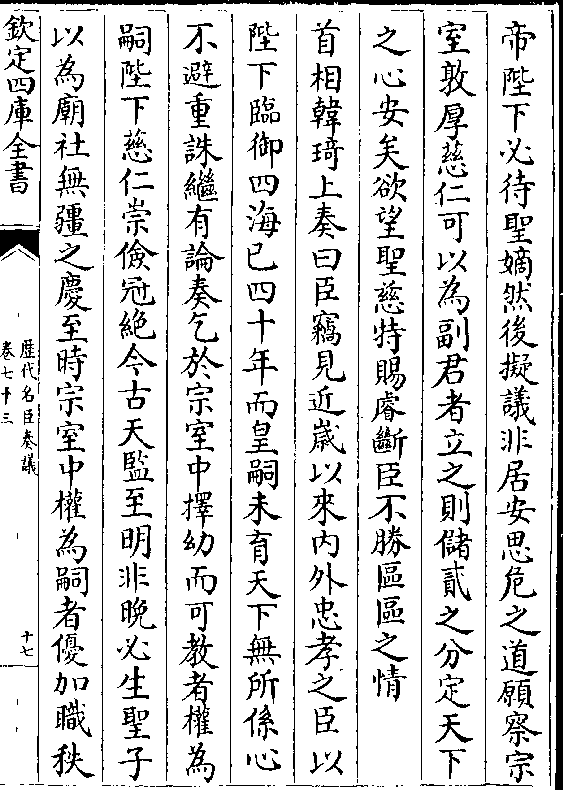 帝陛下必待聖嫡然後擬議非居安思危之道願察宗
室敦厚慈仁可以為副君者立之則儲貳之分定天下
之心安矣欲望聖慈特賜睿斷臣不勝區區之情
首相韓琦上奏曰臣竊見近嵗以來内外忠孝之臣以
陛下臨御四海已四十年而皇嗣未育天下無所係心
不避重誅繼有論奏乞於宗室中擇幼而可教者權為
嗣陛下慈仁崇儉冠絶今古天監至明非晚必生聖子
以為廟社無疆之慶至時宗室中權為嗣者優加職秩
欽定四庫全書
歴代名臣奏議
卷七十三
十七